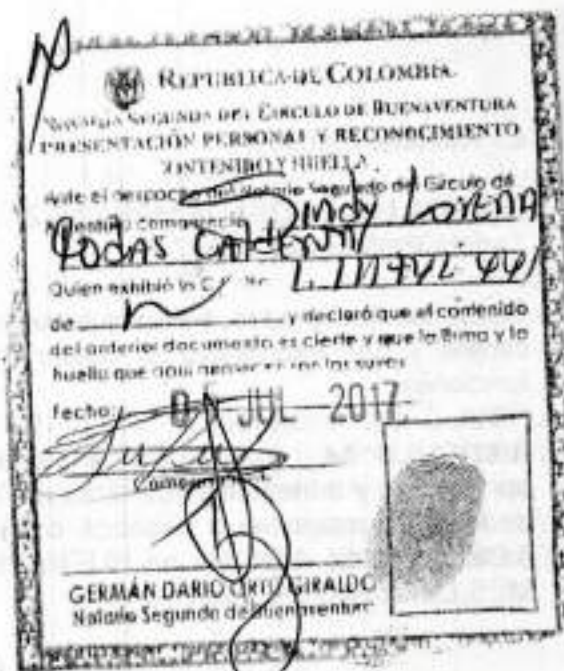 REPUBLICA DE COLOMBIA
NOTARIA SEGUNDA DEL CIRCULO DE BUENAVENTURA
PRESENTACIÓN PERSONAL Y RECONOCIMIENTO
CONTENIDO Y HUELLA
Ante el despacho del Notario Segundo del Circulo de
compareció Sindy LORENA
RODAS CALDERON
Quien exhibió la C.C. No.
de y declaró que el contenido
del anterior documento es cierto y que la firma y la
huella que aquí aparecen son las suyas
Fecha: 05 JUL 2017
GERMÁN DARIO ORTIZ GIRALDO
Notario Segundo de Buenaventura